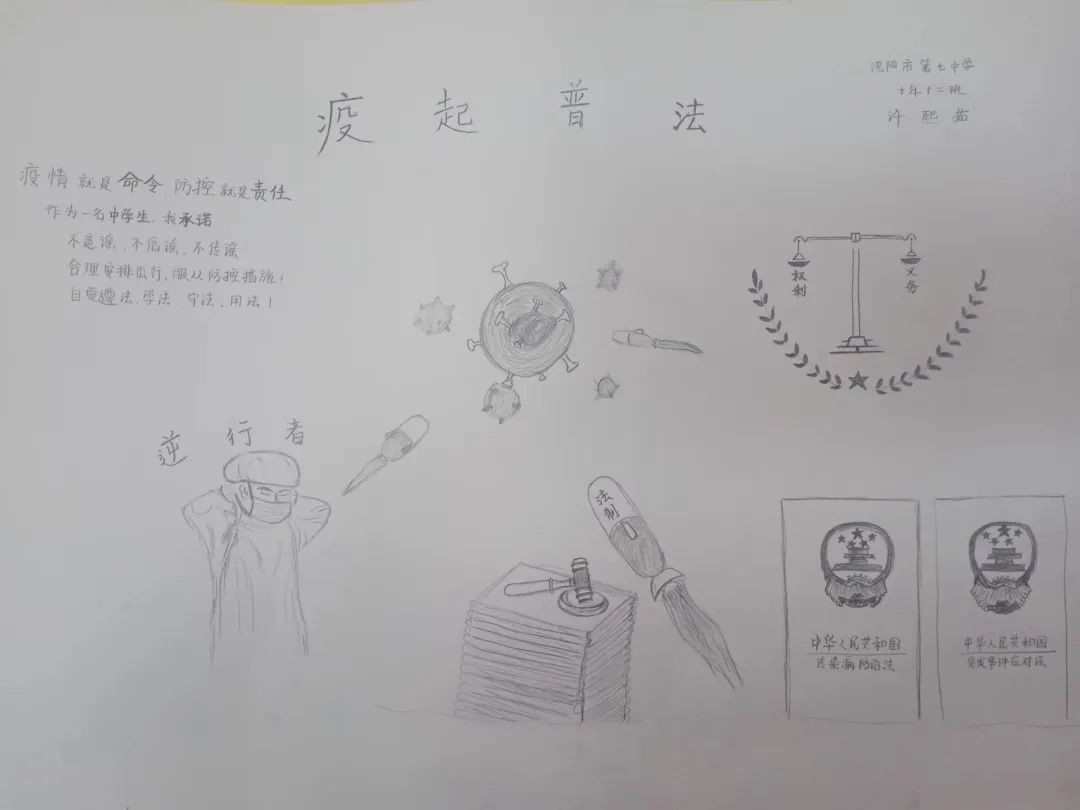 疫起普法
沈阳市第七中学
七年十二班
许熙茹
疫情就是命令,防控就是责任
作为一名中学生,我承诺
不造谣、不信谣、不传谣
合理安排出行,服从防控措施!
自觉遵法、学法、守法、用法!
权利
义务
逆行者
法制
中华人民共和国
传染病防治法
中华人民共和国
突发事件应对法